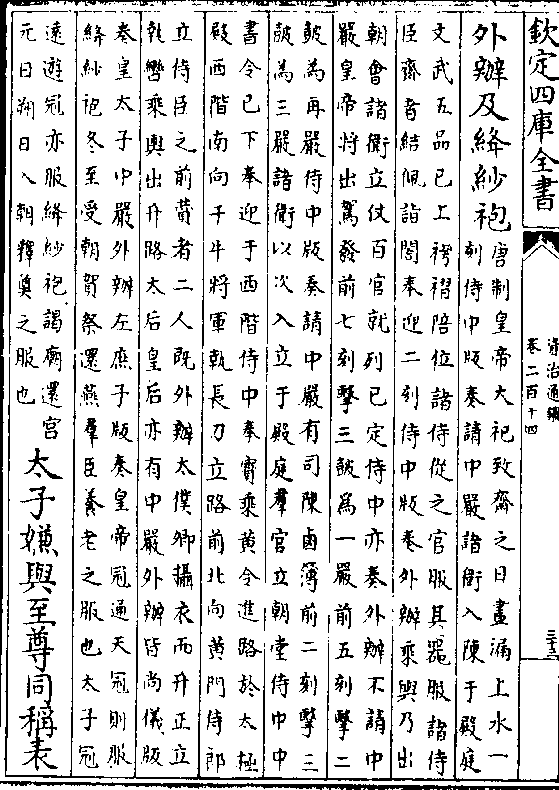 欽定四庫全書
資治通鑑
卷二百十四
三十三
外辦及絳紗袍
唐制皇帝大祀致齋之日晝漏上水一
刻侍中版奏請中嚴諸衛入陳于殿庭
文武五品已上袴褶陪位諸侍從之官服其器服諸侍
臣齋者結佩詣閤奉迎二刻侍中版奏外辦乘輿乃出
朝會諸衛立仗百官就列已定侍中亦奏外辦不請中
嚴皇帝將出駕發前七刻擊三皷為一嚴前五刻擊二
皷為再嚴侍中版奏請中嚴有司陳鹵簿前二刻擊三
皷為三嚴諸衛以次入立于殿庭羣官立朝堂侍中中
書令已下奉迎于西階侍中奉寳乘黄令進路於太極
殿西階南向千牛將軍執長刀立路前北向黄門侍郎
立侍臣之前贊者二人既外辦太僕卿攝衣而升正立
執轡乘輿出升路太后皇后亦有中嚴外辦皆尚儀版
奏皇太子中嚴外辦左庶子版奏皇帝冠通天冠則服
絳紗袍冬至受朝賀祭還燕羣臣養老之服也太子冠
遠遊冠亦服絳紗袍謁廟還宮
元日朔日入朝釋奠之服也
太子嫌與至尊同稱表